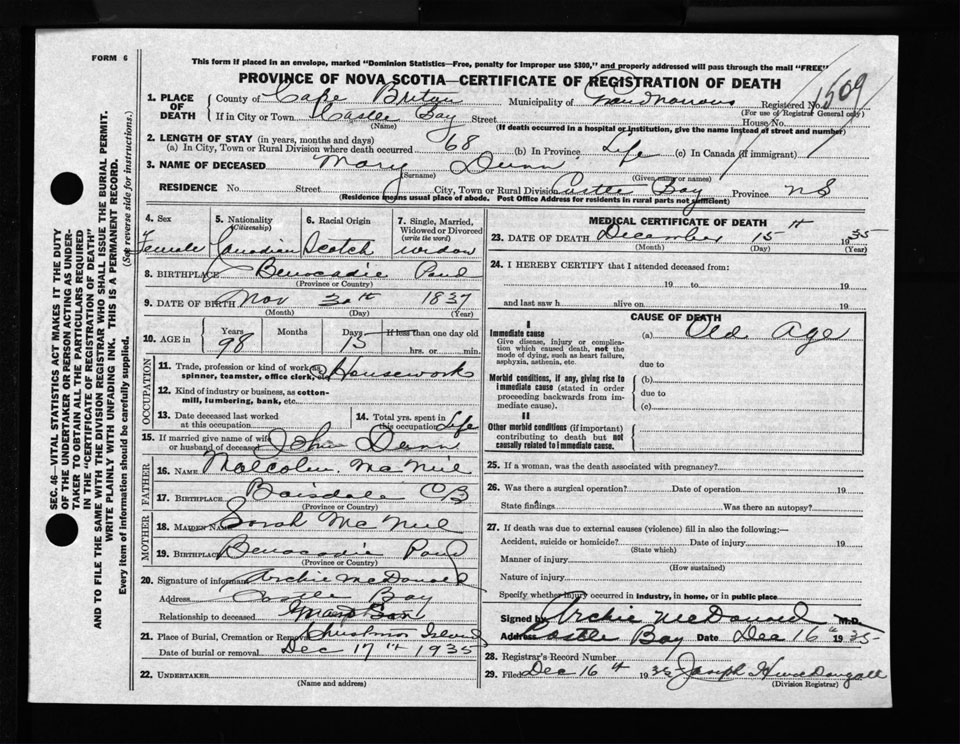 FORM 6
This form if placed in an envelope, marked "Dominion Statistics—Free, penalty for improper use $300," and properly addressed will pass through the mail "FREE"
PROVINCE OF NOVA SCOTIA—CERTIFICATE OF REGISTRATION OF DEATH
1509
1. PLACE OF DEATH
County of Cape Breton Municipality of Registered No.
(For use of Registrar General only)
If in City or Town Castle Bay Street House No.
(Name) (If death occurred in a hospital or institution, give the name instead of street and number)
2. LENGTH OF STAY (in years, months and days)
(a) In City, Town or Rural Division where death occurred 68 (b) In Province Life (c) In Canada (if immigrant)
3. NAME OF DECEASED Mary Dunn
(Surname) (Given name or names)
RESIDENCE No. Street City, Town or Rural Division Castle Bay Province NS
(Residence means usual place of abode. Post Office Address for residents in rural parts not sufficient)
4. Sex Female
5. Nationality (Citizenship) Canadian
6. Racial Origin Scotch
7. Single, Married, Widowed or Divorced (write the word) widow
8. BIRTHPLACE Benacadie Pond
(Province or Country)
9. DATE OF BIRTH Nov 30th 1837
(Month) (Day) (Year)
10. AGE in Years 98 Months Days 15 If less than one day old hrs. or min.
OCCUPATION
11. Trade, profession or kind of work as spinner, teamster, office clerk, etc. Housework
12. Kind of industry or business, as cotton-mill, lumbering, bank, etc.
13. Date deceased last worked at this occupation
14. Total yrs. spent in this occupation Life
15. If married give name of wife or husband of deceased John Dunn
FATHER
16. NAME Malcolm McNeil
17. BIRTHPLACE Boisdale CB
(Province or Country)
MOTHER
18. MAIDEN NAME Sarah McNeil
19. BIRTHPLACE Benacadie Pond
(Province or Country)
20. Signature of informant Archie McDonald
Address Castle Bay
Relationship to deceased Grand Son
21. Place of Burial, Cremation or Removal Christmas Island
Date of burial or removal Dec 17th 1935
22. UNDERTAKER
(Name and address)
MEDICAL CERTIFICATE OF DEATH
23. DATE OF DEATH December 15th 1935
(Month) (Day) (Year)
24. I HEREBY CERTIFY that I attended deceased from:
19 to 19
and last saw h alive on 19
CAUSE OF DEATH
I
Immediate cause
Give disease, injury or complication which caused death, not the mode of dying, such as heart failure, asphyxia, asthenia, etc.
(a) Old Age
due to
Morbid conditions, if any, giving rise to immediate cause (stated in order proceeding backwards from immediate cause).
(b)
due to
(c)
II
Other morbid conditions (if important) contributing to death but not causally related to immediate cause.
25. If a woman, was the death associated with pregnancy?
26. Was there a surgical operation? Date of operation 19
State findings Was there an autopsy?
27. If death was due to external causes (violence) fill in also the following:—
Accident, suicide or homicide? Date of injury 19
(State which)
Manner of injury
(How sustained)
Nature of injury
Specify whether injury occurred in industry, in home, or in public place
Signed by Archie McDonald M.D.
Address Castle Bay Date Dec 16th 1935
28. Registrar's Record Number
29. Filed Dec 16th 1935 Joseph
(Division Registrar)
SEC. 46—VITAL STATISTICS ACT MAKES IT THE DUTY
OF THE UNDERTAKER OR PERSON ACTING AS UNDER-
TAKER TO OBTAIN ALL THE PARTICULARS REQUIRED
IN THE "CERTIFICATE OF REGISTRATION OF DEATH"
AND TO FILE THE SAME WITH THE DIVISION REGISTRAR WHO SHALL ISSUE THE BURIAL PERMIT.
WRITE PLAINLY WITH UNFADING INK. THIS IS A PERMANENT RECORD.
Every item of information should be carefully supplied. (See reverse side for instructions.)